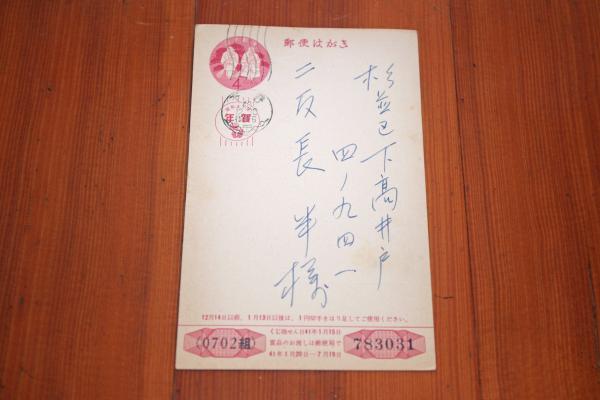 郵便はがき
杉並区下高井戸
四ノ九四一
二反長半様
年賀
12月14日以前、1月13日以後は、1円切手をはり足してご使用ください。
(0702組)
くじ抽せん日41年1月15日
賞品のお渡しは郵便局で
41年1月20日―7月19日
783031